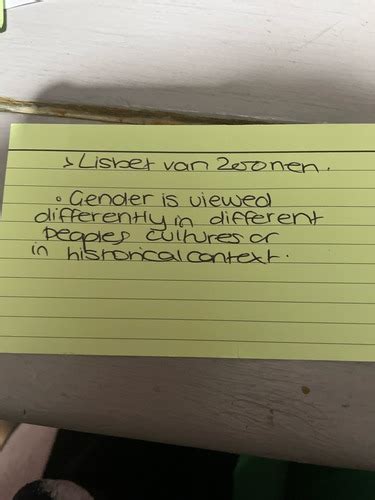 > Lisbet van Zoonen.
• Gender is viewed
differently in different
peoples cultures or
in historical context.